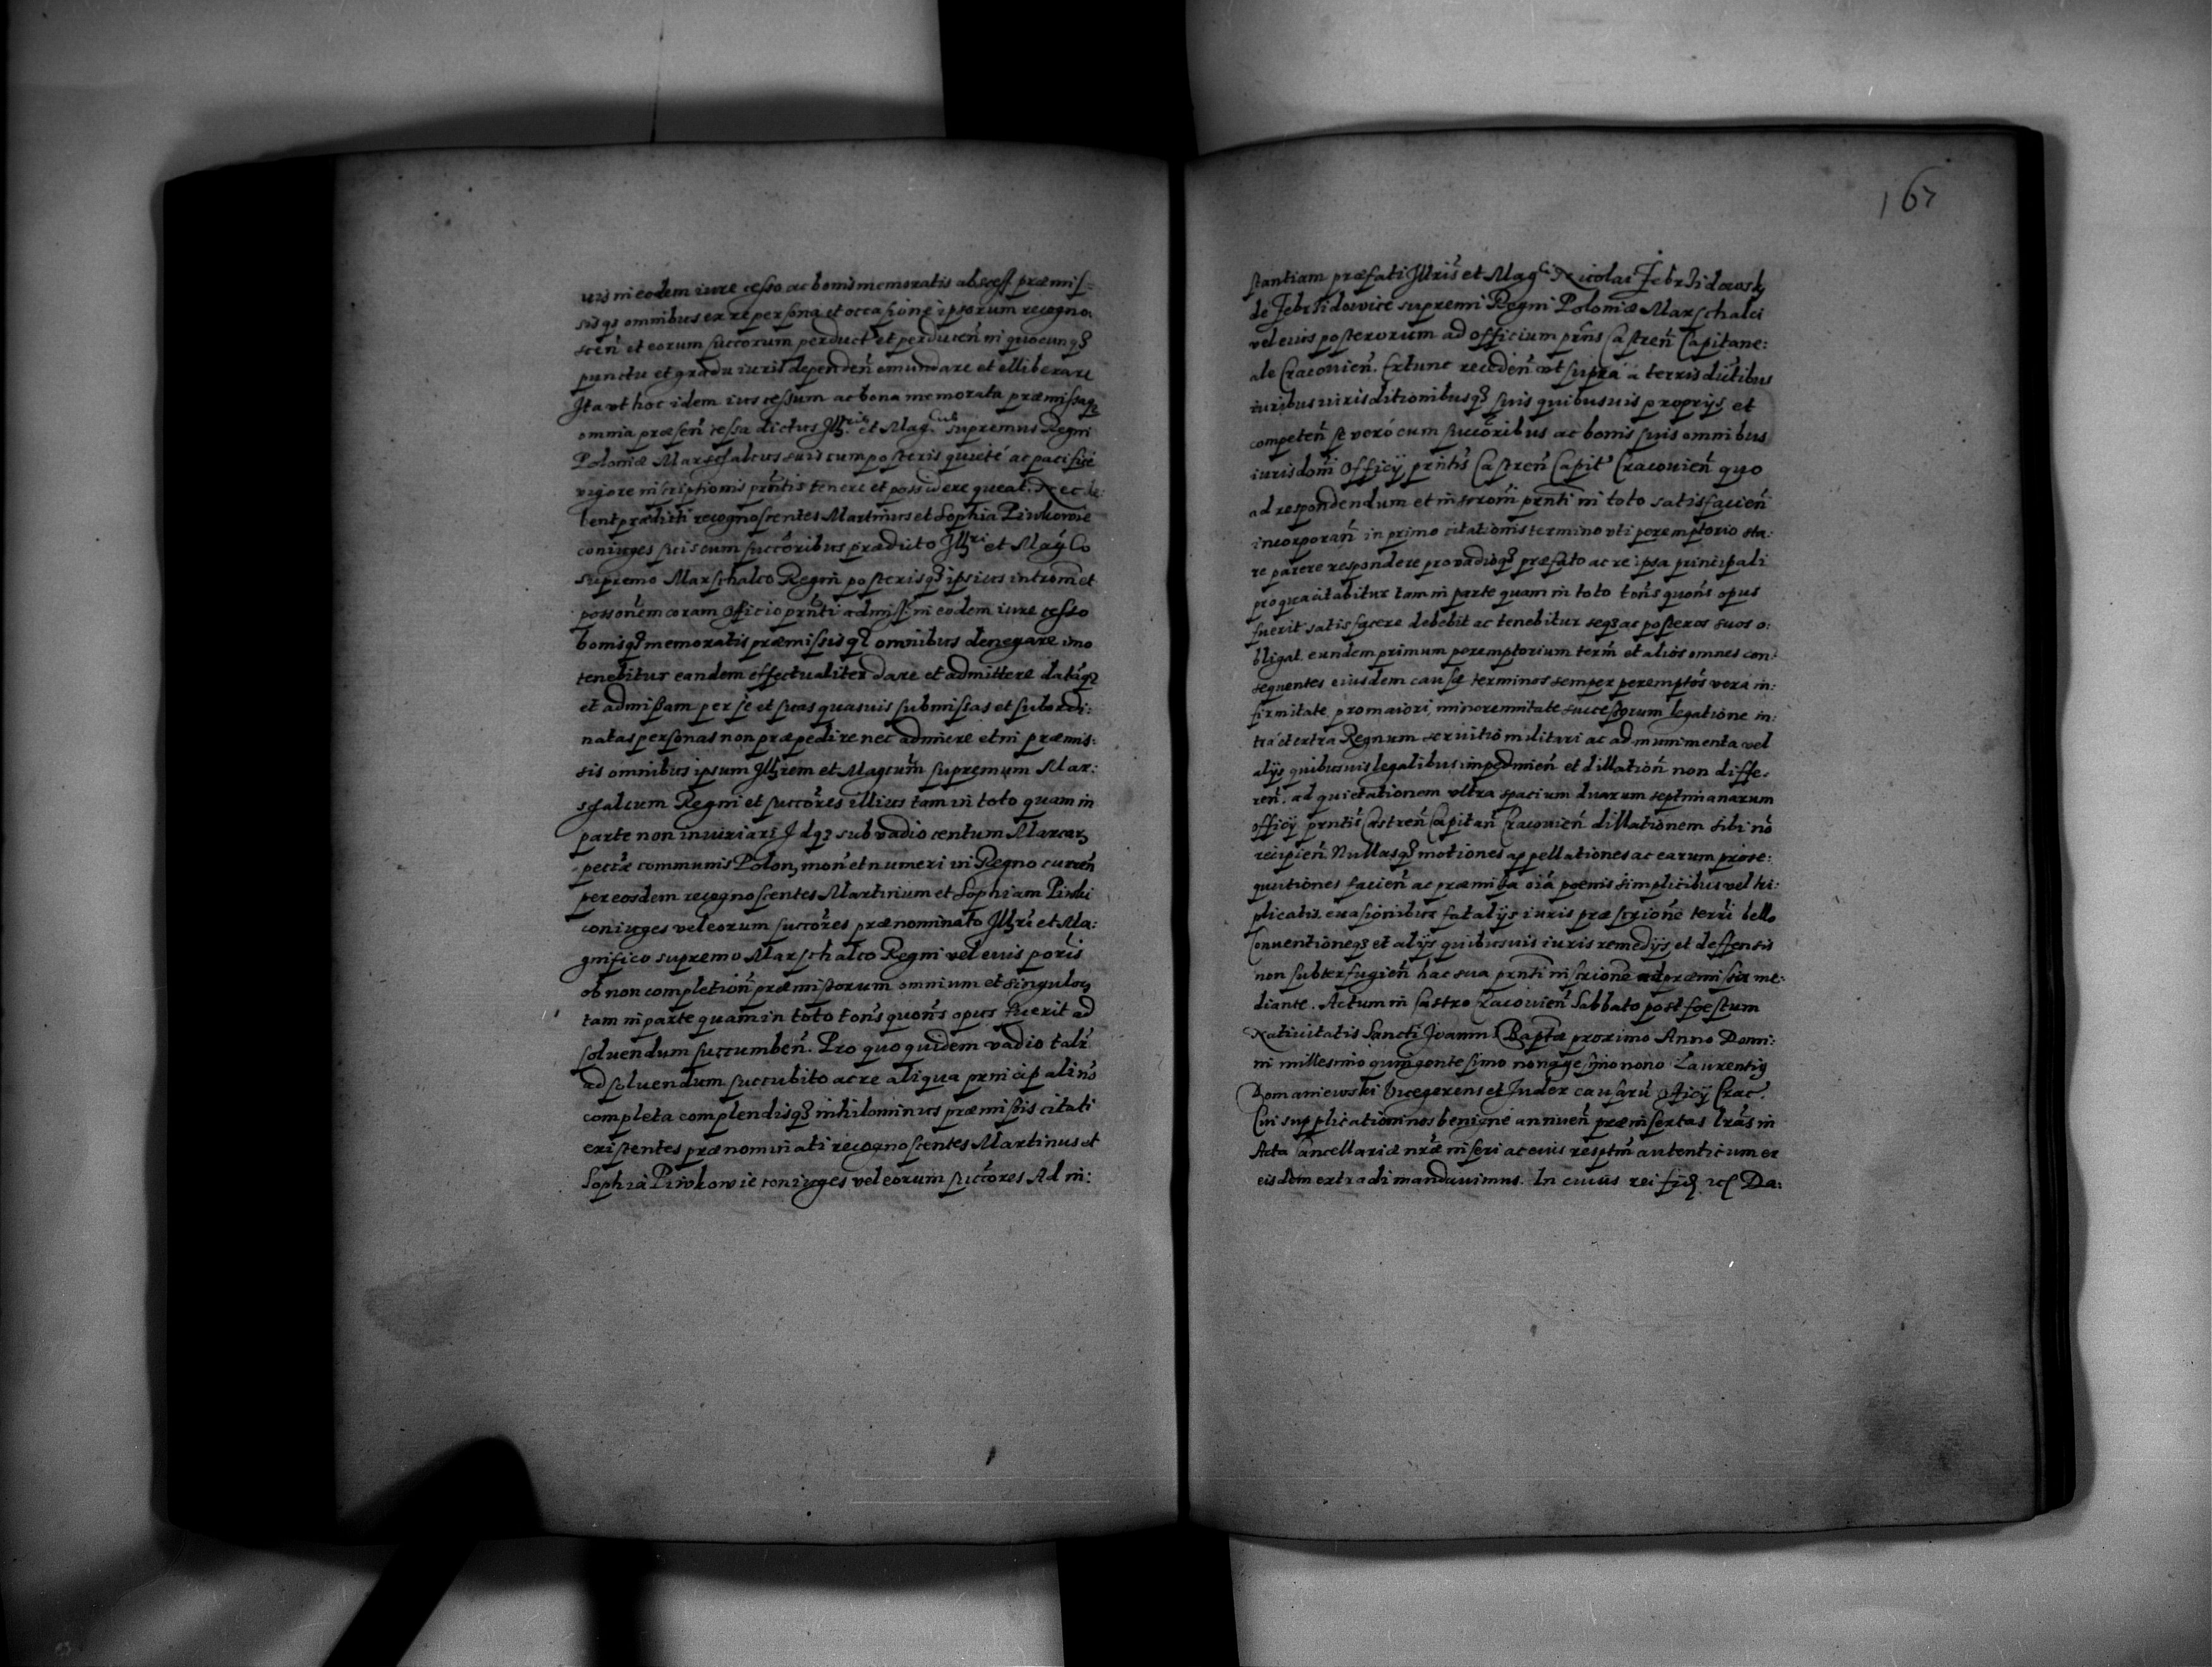 uis in eodem iure cesso ac bonis memoratis ab cess præmis=
sisq3 omnibus ex re persona et occasione ipsorum recogno
scen̄ et eorum succorum perduct et perducen̄ in quocunq3
punctu et gradu iuris dependen̄ emundare et elliberare
Ita vt hoc idem ius cessum ac bona memorata præmissaq3
omnia præsen̄ cessa dictus Illris et Mag.cus supremus Regni
Poloniæ Marschalcus suis cum posteris quieté ac pacificé
vigore inscriptionis prn̄tis tenere et possidere queat. Nec de:
bent prædicti recognoscentes Martinus et Sophia Piwkowie
coniuges suis cum succōribus prædicto Illri et Mag̃co
supremo Marschalco Regni posterisq3 ipsius introm̄ et
posson̄em coram Officio prn̄ti admiss: in eodem iure cesso
bonisq3 memoratis præmissisq3 omnibus denegare imo
tenebitur eandem effectualiter dare et admittere datāq3
et admissam per se et suas quasuis submissas et subordi:
natas personas non præpedire nec adimere et in præmis:
sis omnibus ipsum Illrem et Magcum̄ supremum Mar:
schalcum Regni et succōres illius tam in toto quam in
parte non iniuriari Idq3 sub vadio centum Marcar,
pectæ communis Polon, mon̄ et numeri in Regno curren̄
per eosdem recognoscentes Martinum et Sophiam Piwki
coniuges vel eorum succōres prænominato Illri et Ma:
gnifico supremo Marschalco Regni vel eius poris
ob non completion̄ præmissorum omnium et singulor,
tam in parte quam in toto ton̄s quon̄s opus fuerit ad
soluendum succumben̄. Pro quo quidem vadio talr̄
ad soluendum succubito ac re aliqua principali nō
completa complendisq3 nihilominus præmissis citati
existentes prænominati recognoscentes Martinus et
Sophia Piwkowie coniuges vel eorum succōres Ad in:
167
stantiam præfati Illris et Magci Nicolai Zebrzidowsky
de Zebrzidowice supremi Regni Poloniæ Marschalci
vel eius posterorum ad officium prn̄s Castren̄ Capitane:
ale Cracouien̄. Extunc receden̄ vt supra a terris dictibus
iuribus iurisditionibusq3 suis quibusuis proprijs et
competen̄ se veró cum succōribus ac bonis suis omnibus
iurisdoni Officij prn̄tis Castren̄ Capit Cracouien̄ quo
ad respondendum et inscroni prn̄ti in toto satisfacien̄
incorporan̄ in primo citationis termino vti peremptorio sta:
re parere respondere pro vadioq3 præfato ac re ipsa principali
pro qua citabitur tam in parte quam in toto ton̄s quon̄s opus
fuerit satisfacere debebit ac tenebitur seq3 ac posteros suos o:
bligat eundem primum peremptorium term̄ et alios omnes con:
sequentes eiusdem causæ terminos semper peremptōs vera in:
firmitate pro maiori, minorennitate successorum legatione in:
tra et extra Regnum seruitio militari ac ad munimenta vel
alijs quibusuis legalibus impedimen̄ et dillation̄ non diffe:
ren̄. ad quietationem vltra spacium duarum septimanarum
officij prn̄tis Castren̄ Capitan̄ Cracouien̄ dillationem sibi nō
recipien̄. Nullasq3 motiones appellationes ac earum prose:
quutiones facien̄ ac præmissa oīa poenis simplicibus vel tri:
plicatis, euasionibus fatalijs iuris præscrione terri bello
Conuentioneq3 et alijs quibusuis iuris remedijs et deffensis
non subterfugien̄ hac sua prn̄ti inscrione ad præmissa me:
diante. Actum in Castro Cracouien̄ Sabbato post foestum
Natiuitatis Sancti Joanni Baptæ proximo Anno Domi:
ni millesimo quingentesimo nonagesimo nono Laurentig
Domaniewski Vicegerens et Iudex causarū officij Crac.
Cui supplicationi nos benigne annuen̄ præinsertas lrās in
Acta Cancellariæ nræ inseri ac eius resptm̄ autenticum ex
eisdem extradi mandauimus. In cuius rei fid rc Da: